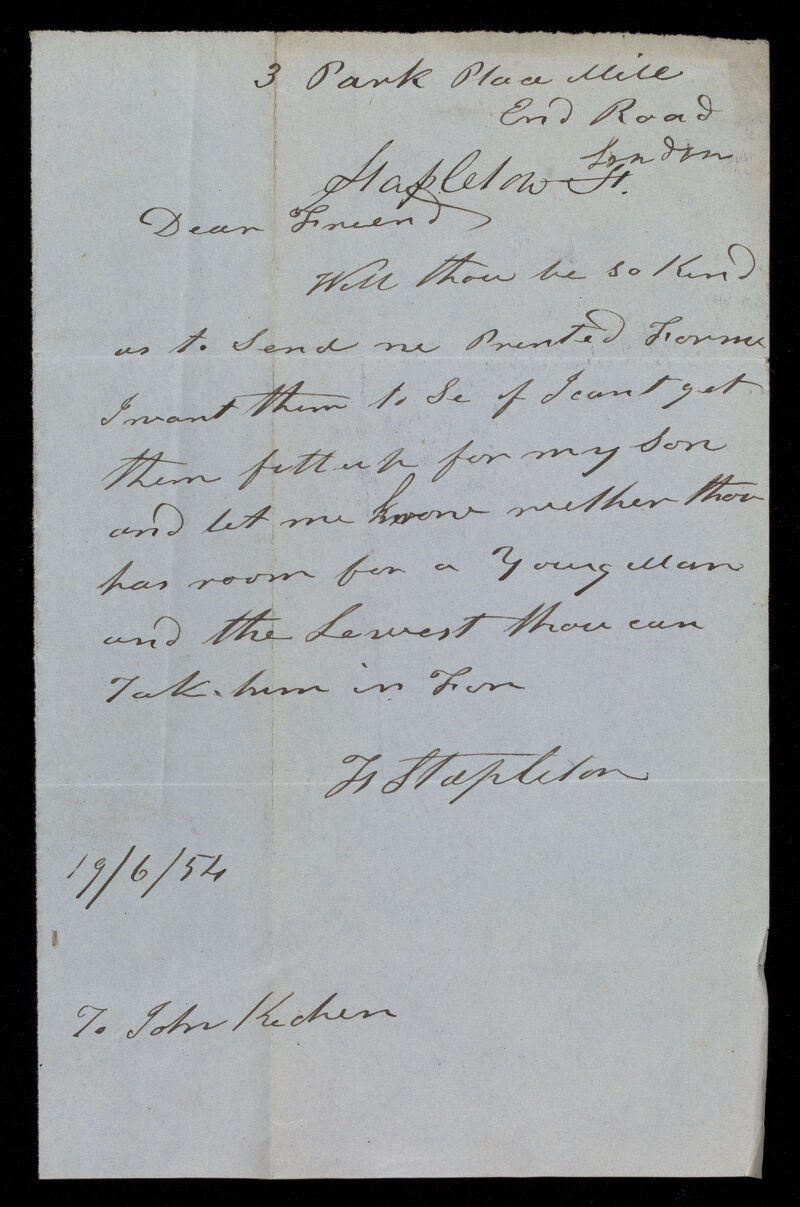 3 Park Place Mile
End Road
London
Stapleton
Dear Friend
Will thou be so Kind
as to Send me Printed Forme
I want them to Se if I cant get
them fitt up for my Son
and let me know wether thou
has room for a Young Man
and the Lewest thou can
Take him in For
Stapleton
19/6/54
To John Kichen